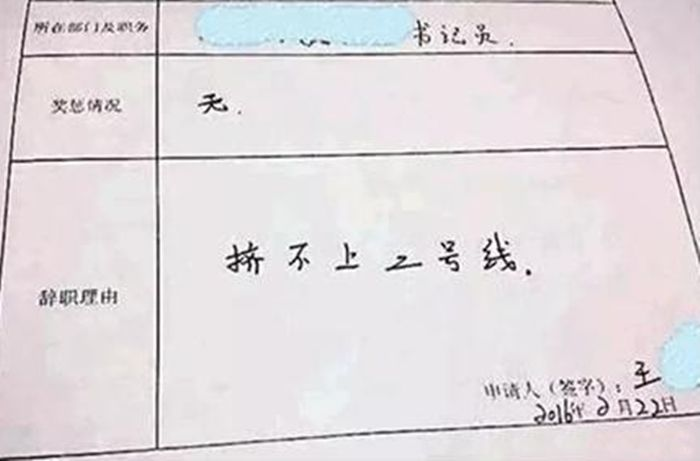 所在部门及职务 书记员.
奖惩情况 无.
辞职理由 挤不上2号线.
申请人（签字）：王
2016年2月22日